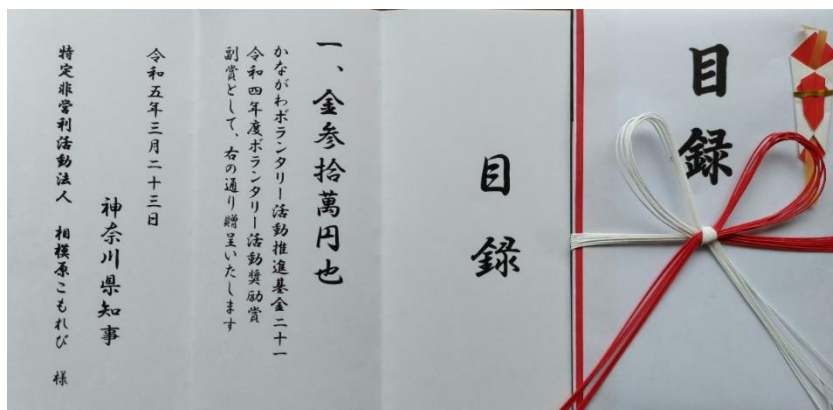 目録
目録
一、金参拾萬円也
かながわボランタリー活動推進基金二十一
令和四年度ボランタリー活動奨励賞
副賞として、右の通り贈呈いたします
令和五年三月二十三日
神奈川県知事
特定非営利活動法人　相模原こもれび　様